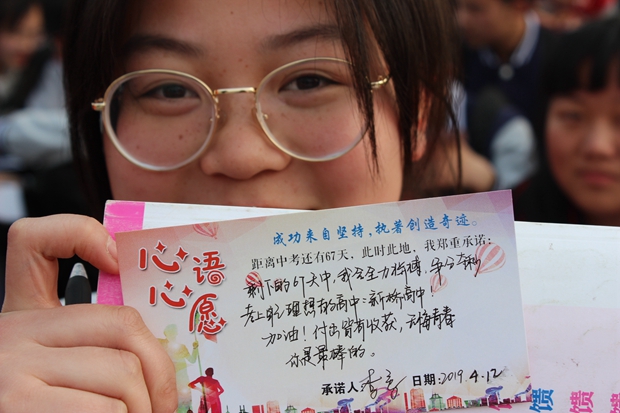 成功来自坚持，执著创造奇迹。
心语
心愿
距离中考还有67天，此时此地，我郑重承诺：
剩下的67天中，我会全力拼搏，争分夺秒
考上自己理想的高中：新桥高中！
加油！付出皆有收获，无悔青春
你是最棒的。
承诺人 李 日期：2019.4.12